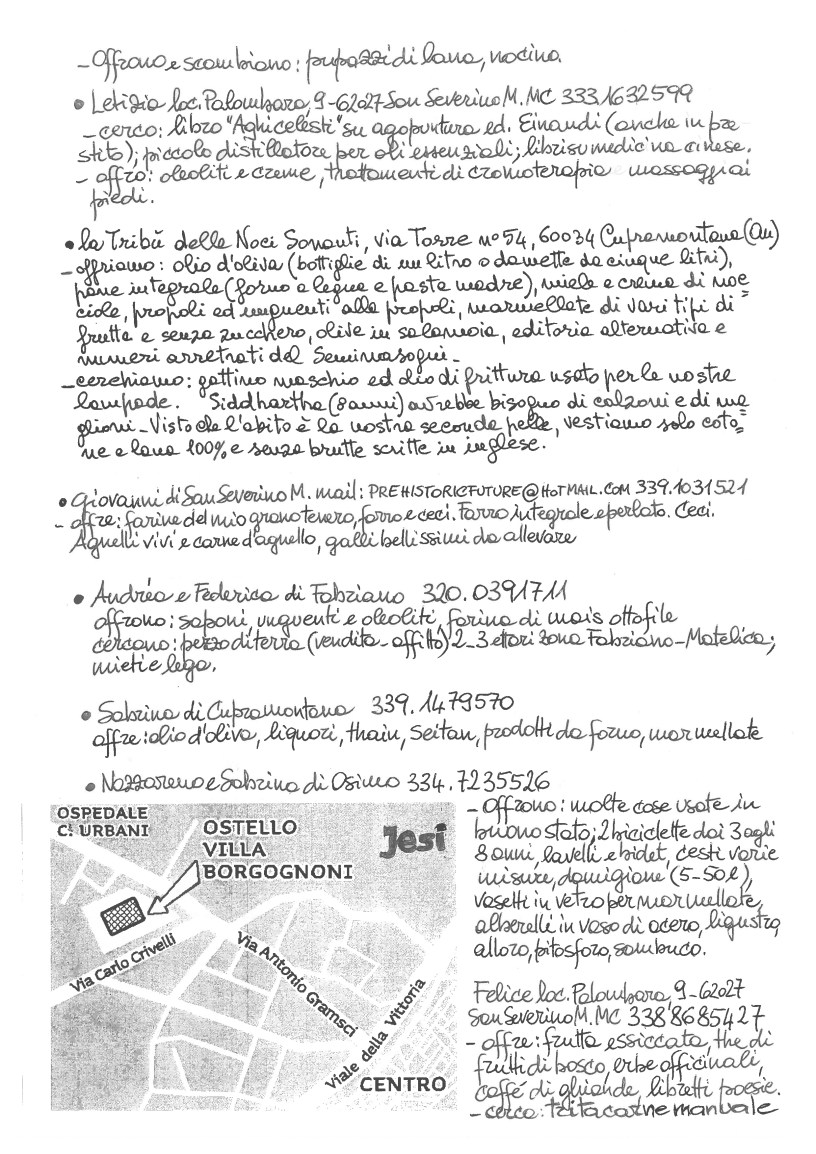 - Offrono e scambiano: pupazzi di lana, nocino.
• Letizia loc. Palombara, 9-62027 San Severino M. MC 333 1632599
- cerco: libro "Aghi celesti" su agopuntura ed. Einaudi (anche in pre
stito); piccolo distillatore per oli essenziali; libri su medicina cinese.
- offro: oleoliti e creme, trattamenti di cromoterapia e massaggi ai
piedi.
• la Tribù delle Noci Sonanti, via Torre n° 54, 60034 Cupramontana (An)
- offriamo: olio d'oliva (bottiglie di un litro o damette da cinque litri),
pane integrale (forno a legna e pasta madre), miele e crema di noc=
ciole, propoli ed unguenti alla propoli, marmellate di vari tipi di
frutta e senza zucchero, olive in salamoia, editoria alternativa e
numeri arretrati del Seminasogni -
- cerchiamo: gattino maschio ed olio di frittura usato per le nostre
lampade. Siddhartha (8 anni) avrebbe bisogno di calzoni e di ma
glioni - Visto che l'abito è la nostra seconda pelle, vestiamo solo coto=
ne e lana 100% e senza brutte scritte in inglese.
• Giovanni di San Severino M. mail: PREHISTORICFUTURE@HOTMAIL.COM 339.1031521
- offre: farine del mio grano tenero, farro e ceci. Farro integrale e perlato. Ceci.
Agnelli vivi e carne d'agnello, galli bellissimi da allevare
• Andréa e Federica di Fabriano 320.0391711
offrono: saponi, unguenti e oleoliti, farina di mais ottofile
cercano: pezzo di terra (vendita-affitto) 2-3 ettari zona Fabriano-Matelica;
mieti e lega.
• Sabrina di Cupramontana 339.1479570
offre: olio d'oliva, liquori, thain, seitan, prodotti da forno, marmellate
• Nazzareno e Sabrina di Osimo 334.7235526
- Offrono: molte cose usate in
buono stato; 2 biciclette dai 3 agli
8 anni, lavelli e bidet, cesti varie
misure, damigiane (5-50 l),
vasetti in vetro per marmellate,
alberelli in vaso di acero, ligustro,
alloro, pitosforo, sambuco.
Felice loc. Palombara, 9-62027
San Severino M. MC 338 8685427
- offre: frutta essiccata, the di
frutti di bosco, erbe officinali,
caffé di ghiande, libretti poesie.
- cerca: tritacarne manuale
OSPEDALE
C. URBANI
OSTELLO
VILLA
BORGOGNONI
Jesi
Via Carlo Crivelli
Via Antonio Gramsci
Viale della Vittoria
CENTRO